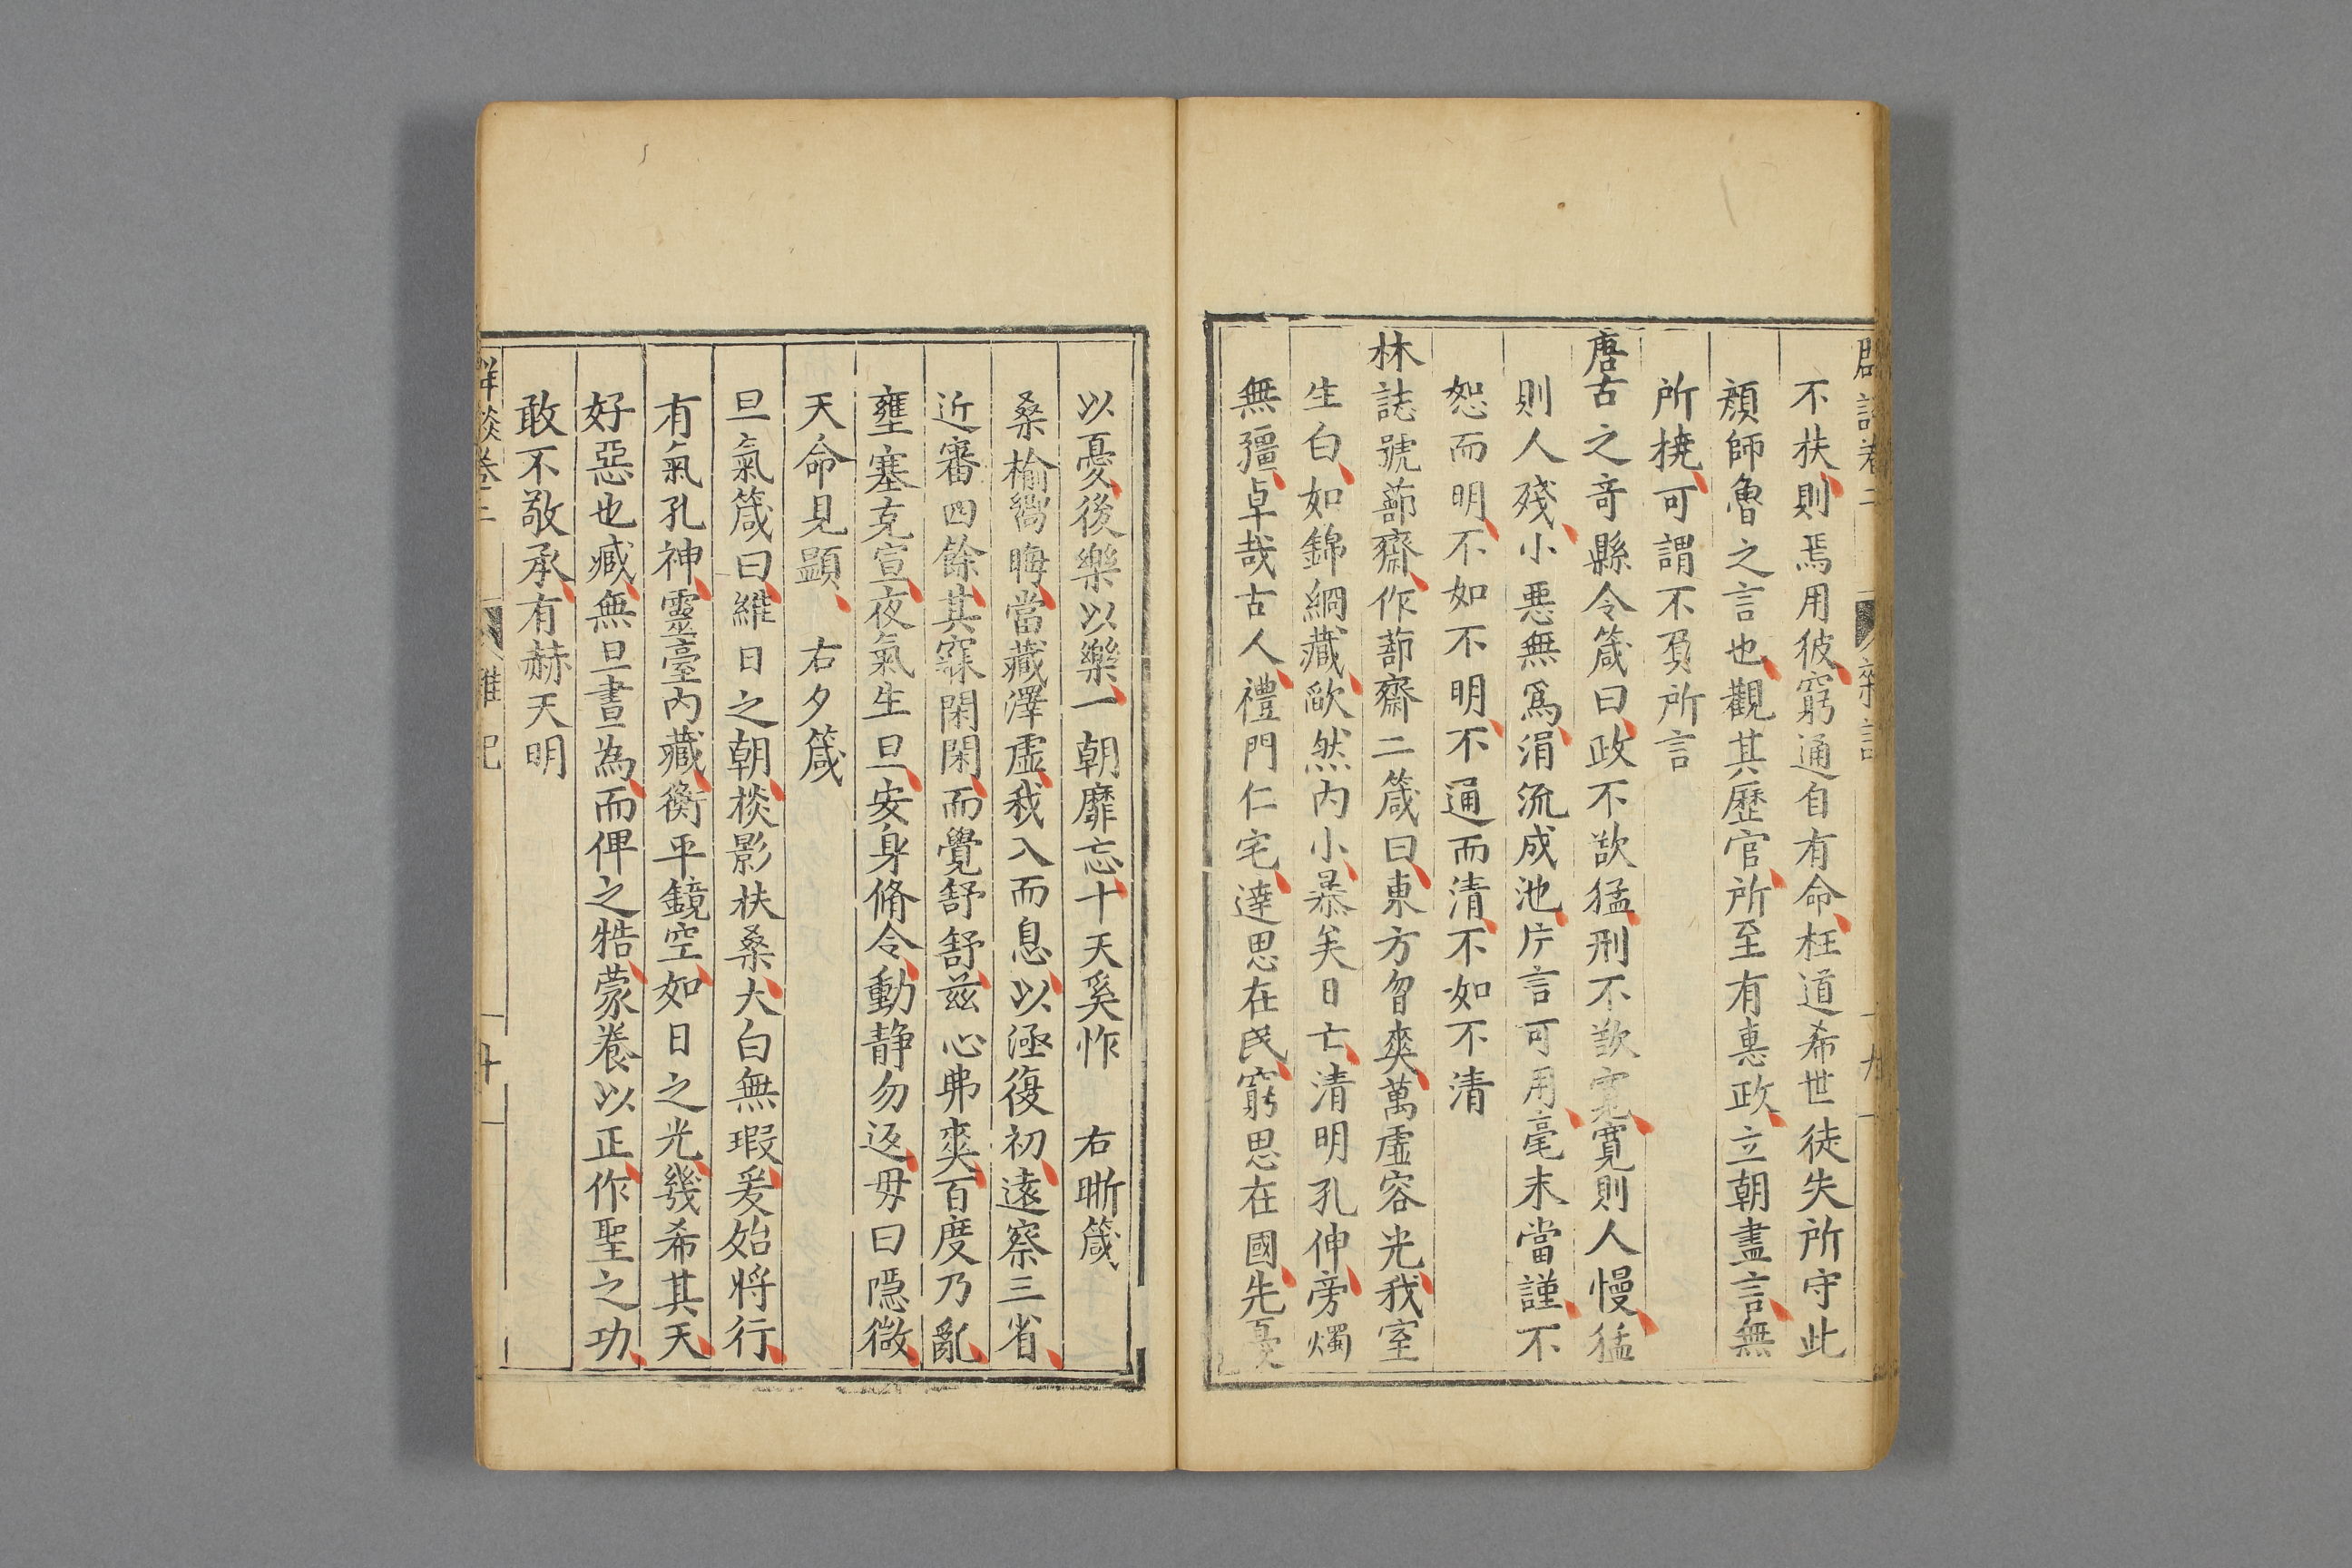 不扶則焉用彼窮通自有命枉道希世徒失所守此
顏師魯之言也觀其歷官所至有惠政立朝盡言無
所撓可謂不負所言
唐古之奇縣令箴曰政不欲猛刑不欲寬寬則人慢猛
則人殘小惡無爲涓流成池片言可用毫末當謹不
恕而明不如不明不通而清不如不清
林誌號蔀齋作蔀齋二箴曰東方曶爽萬虛容光我室
生白如錦絅藏歐然内小暴矣日亡清明孔伸旁燭
無彊卓哉古人禮門仁宅達思在民窮思在國先憂
以憂後樂以樂一朝靡忘十天奚怍 右晣箴
桑榆嚮晦當藏澤虛我入而息以極復初遠察三省
近審四餘其寐閑閑而覺舒舒茲心弗爽百度乃亂
壅塞克宣夜氣生旦安身脩令動静勿返毋曰隱微
天命見顕 右夕箴
旦氣箴曰維日之朝棪影扶桑大白無瑕爰始将行
有氣孔神靈臺内藏衡平鏡空如日之光幾希其天
好惡也臧無旦晝為而俾之牿蒙養以正作聖之功
敢不敬承有赫天明
群談卷二 雜記 十